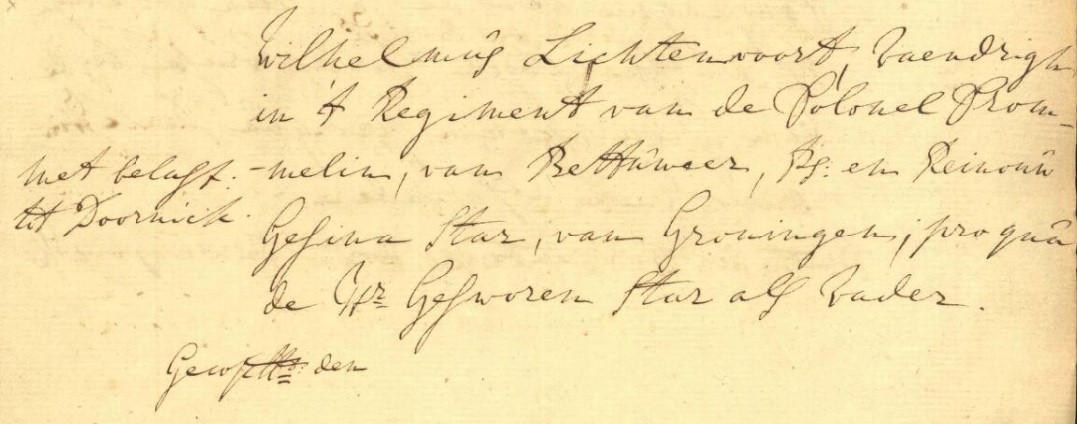 Wilhelmus Lichtenvoort, Vaendrigh
in 't Regiment van de Colonel Prom-
-melin, van Bettuweer, Js: en Reinouw
Gesina Star, van Groningen; pro qua
de Hr Gesworen Star als Vader.
met belast.
tot Doornick.
den